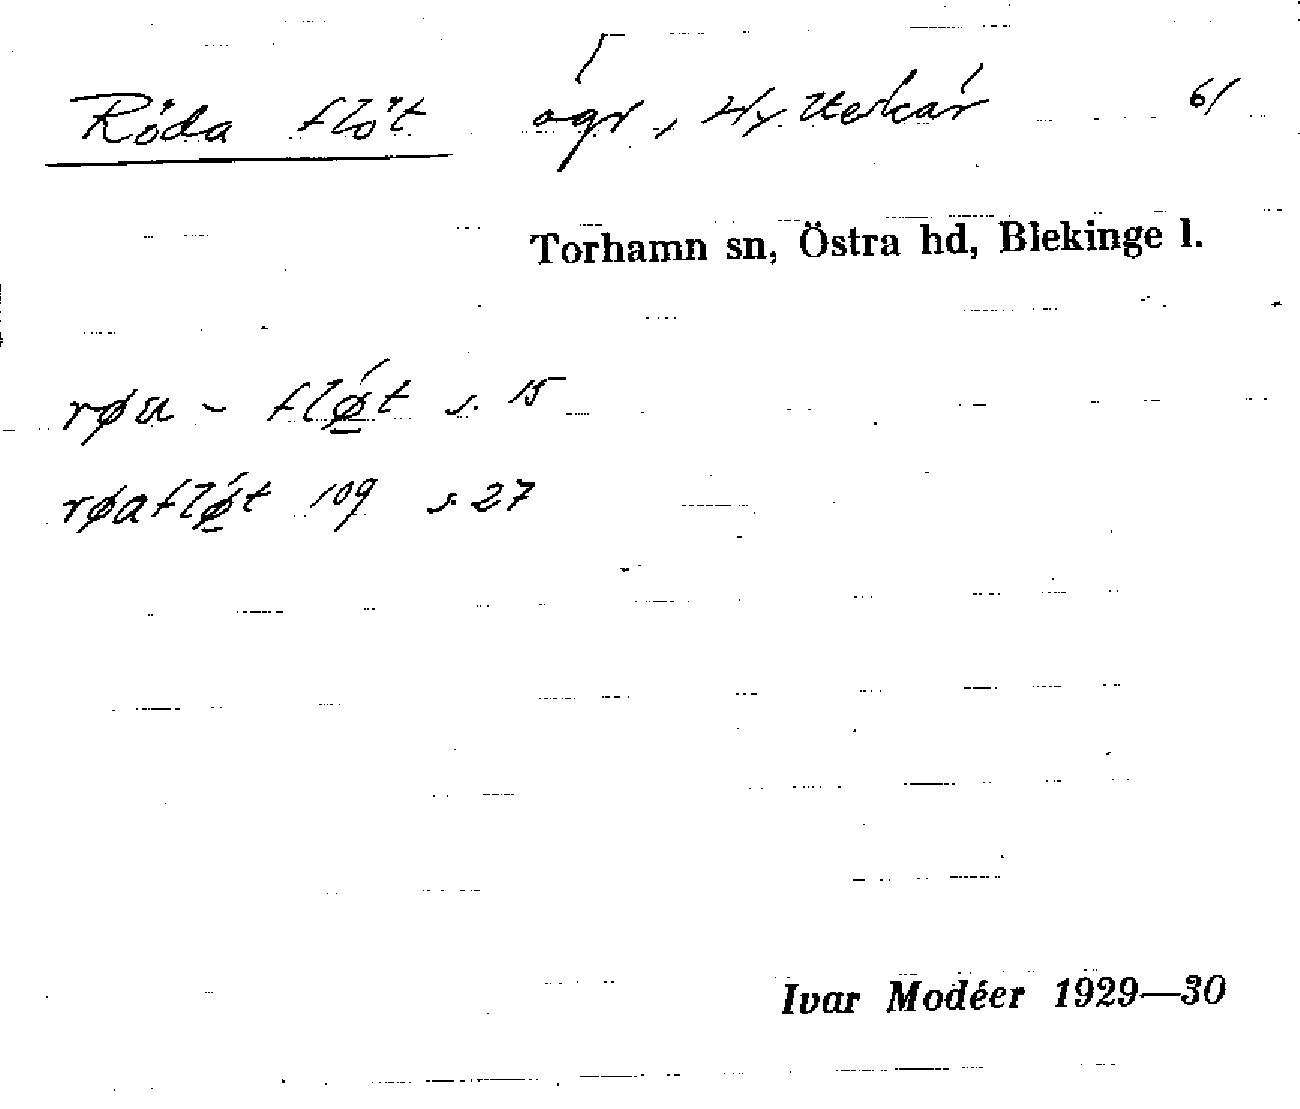 Röda flöt ögr, Ytterkär 61
Torhamn sn, Östra hd, Blekinge l.
røa – flǿ̲t s. 15
røaflǿ̲t 109 s. 27
Ivar Modéer 1929—30